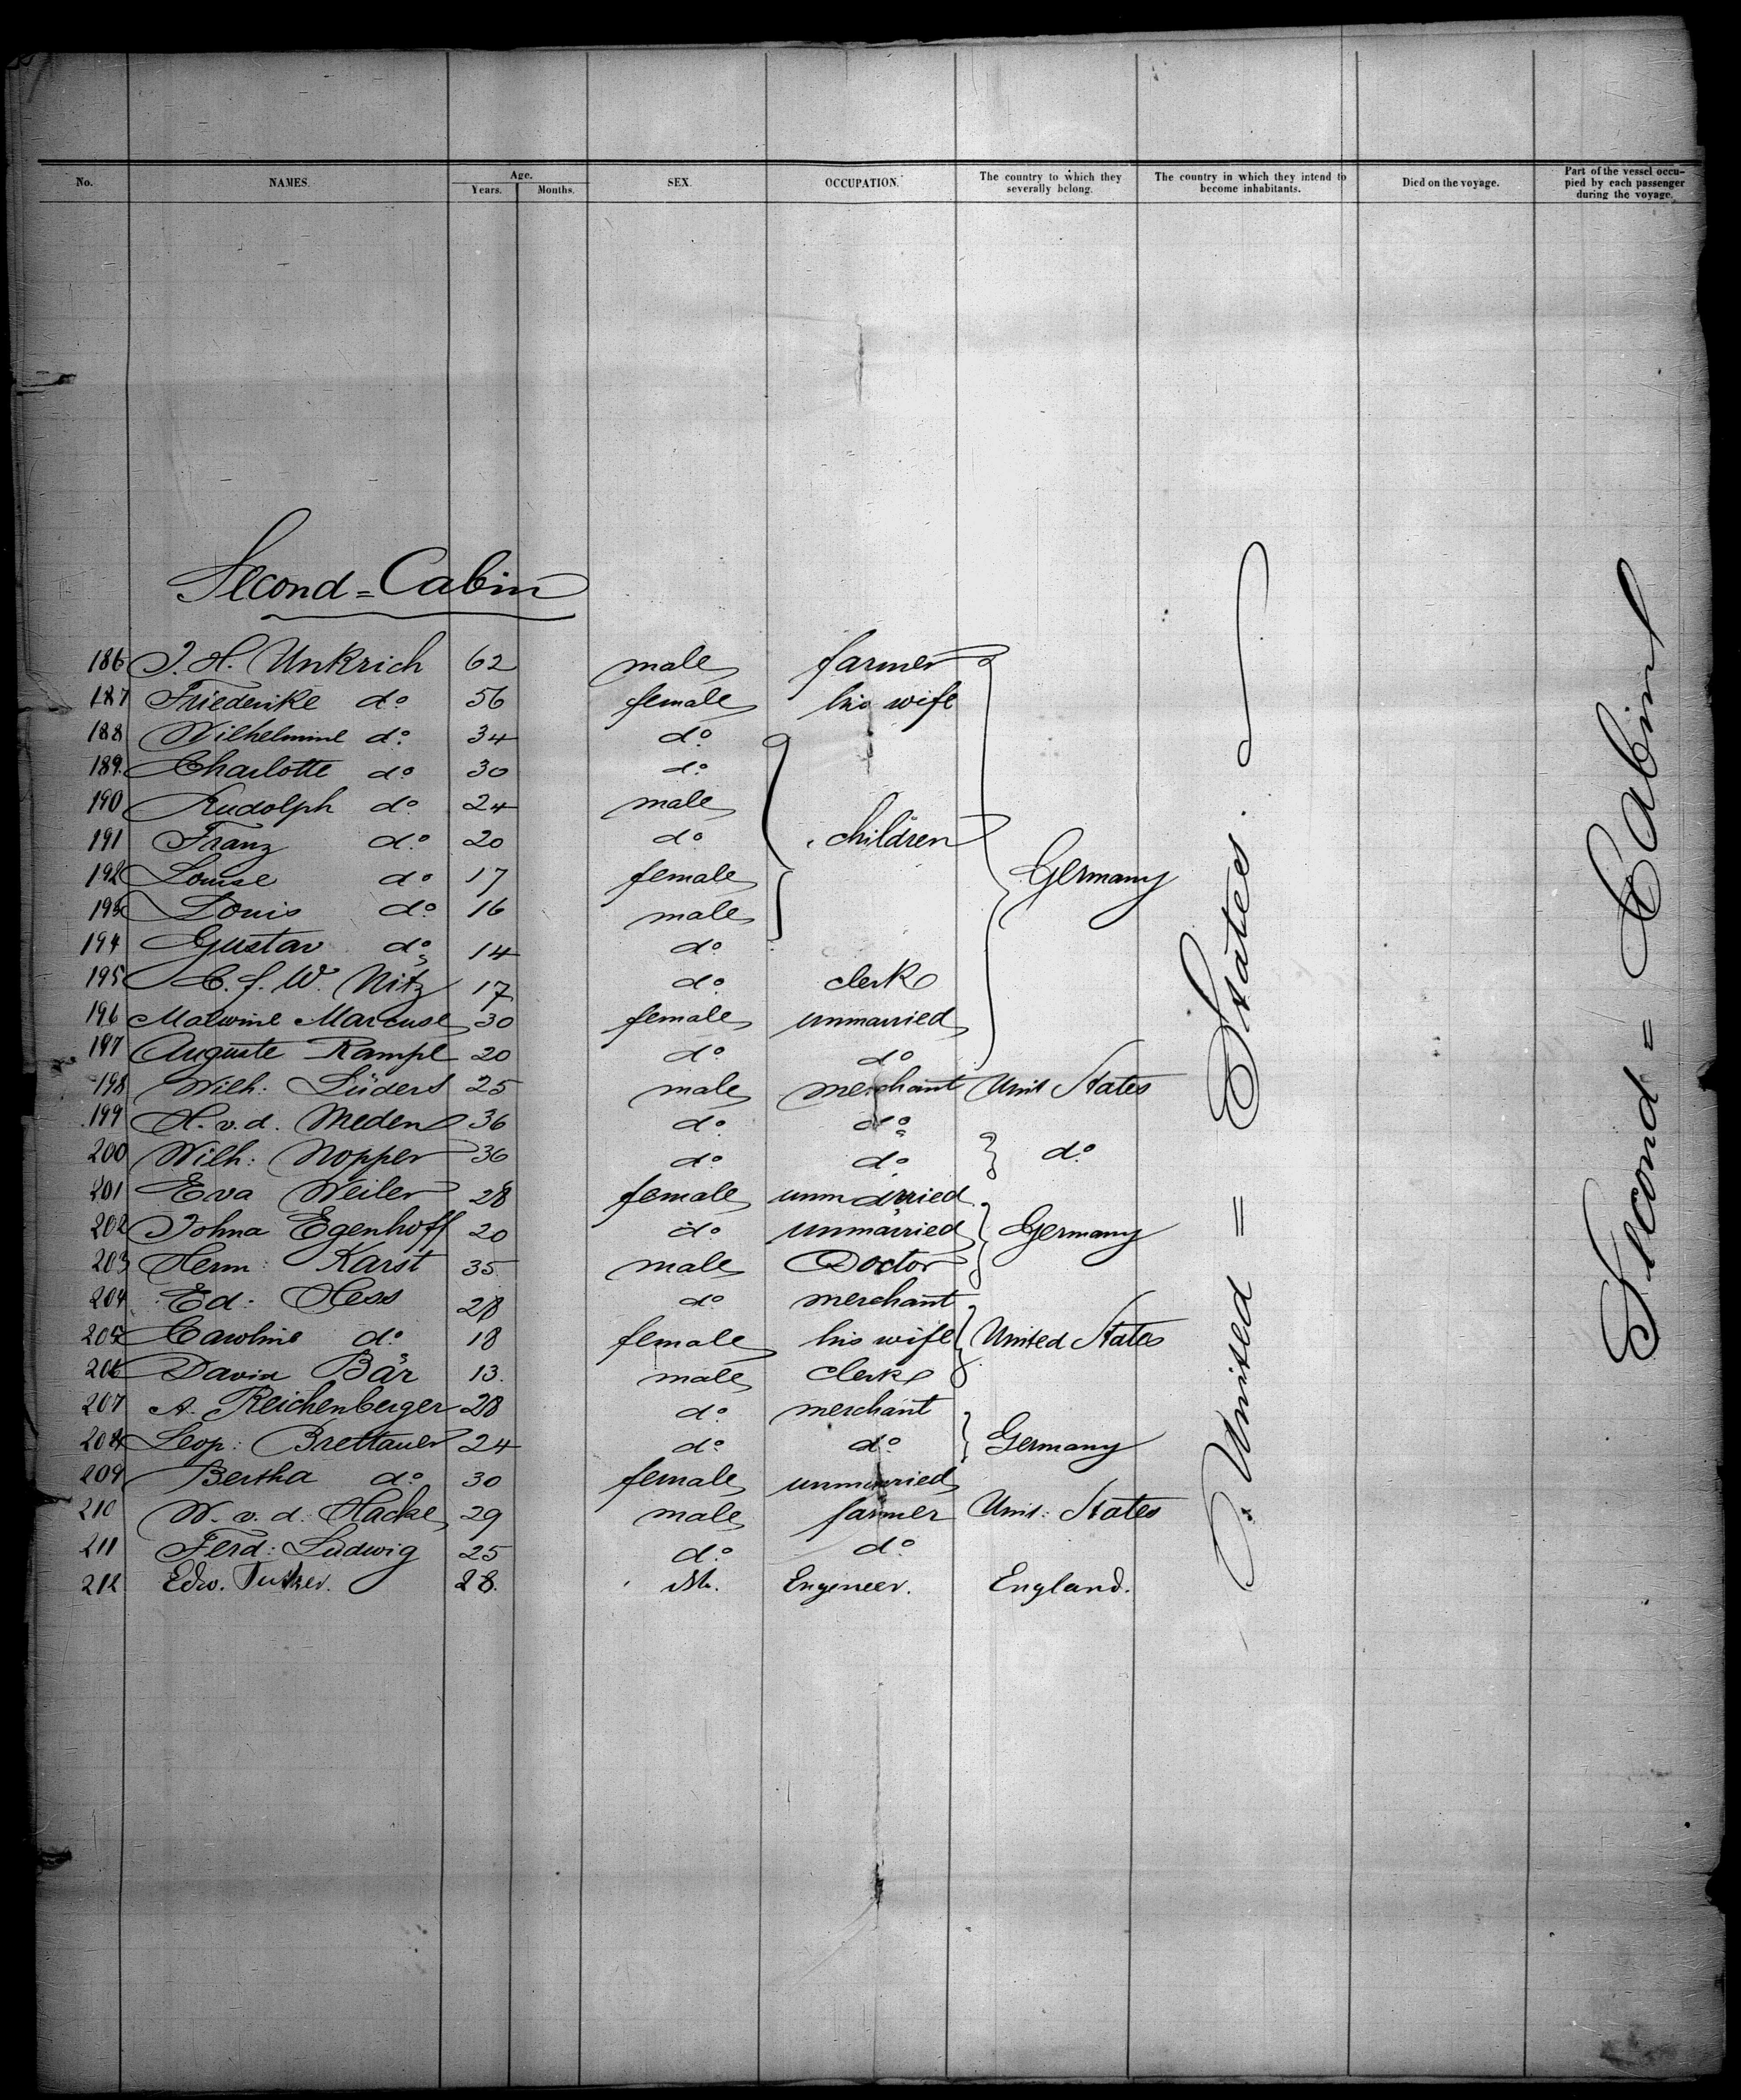 No. NAMES. Age. Years. Months. SEX. OCCUPATION. The country to which they severally belong. The country in which they intend to become inhabitants. Died on the voyage. Part of the vessel occupied by each passenger during the voyage.
Second=Cabin
186 J. H. Unkrich 62 male farmer
187 Friederike do. 56 female his wife
188 Wilhelmine do. 34 do.
189. Charlotte do. 30 do.
190 Rudolph do. 24 male
191 Franz do. 20 do children
192 Louise do. 17 female Germany
193 Louis do. 16 male
194 Gustav do. 14 do.
195 C. f. W. Nitz 17 do. clerk
196 Malwine Marcuse 30 female unmarried
197 Auguste Rampe 20 do. do
198 Wilh: Lüders 25 male merchant Unit States
199 H. v. d. Meden 36 do. do
200 Wilh: Nopper 36 do. do. do.
201 Eva Weiler 28 female unmarried
202 Johna Egenhoff 20 do unmarried Germany
203 Herm: Karst 35 male Doctor
204 Ed: Hess 28 do merchant
205 Caroline do. 18 female his wife United States
206 David Bär 13. male clerk
207 A. Reichenberger 28 do. merchant
208 Leop: Brettauer 24 do. do. Germany
209 Bertha do. 30 female unmarried
210 W. v. d. Hacke 29 male farmer Unit: States
211 Ferd: Ludwig 25 do. do.
212 Edw. 28. M. Engeneer. England.
United = States.
Second = Cabin